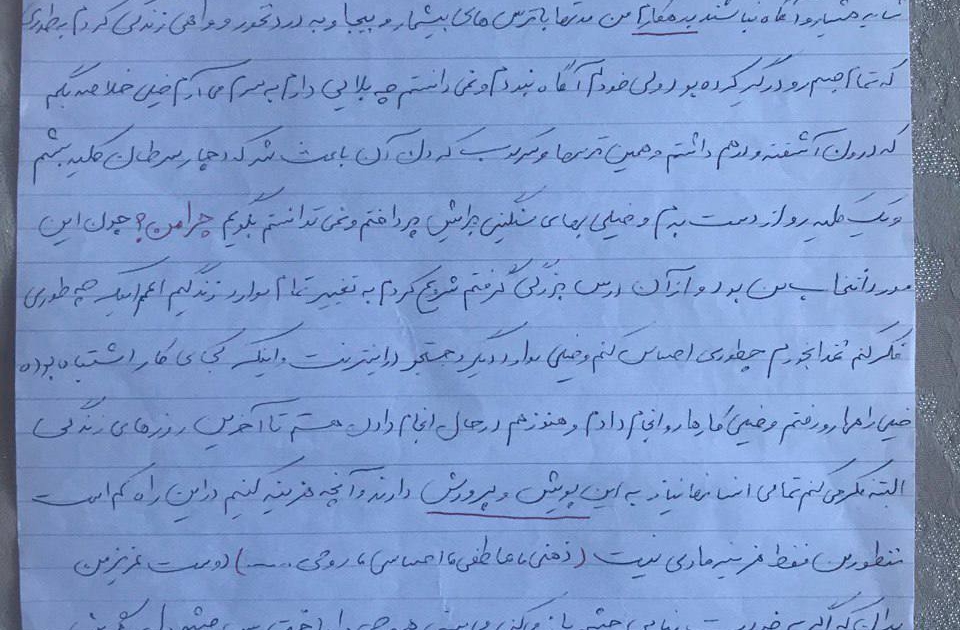 شاید هشیار و آگاه نباشند به هر حال من مدتها با ترس های بیشمار و بیجا و به درد نخور و واهی زندگی کردم بطوری
که تمام جسمم رو درگیر کرده بود ولی خودم آگاه نبودم و نمی دانستم چه بلایی دارم به سرم می آرم خیلی خلاصه بگم
که درون آشفته و درهم داشتم و همین ترسها و سرکوب کردن آن باعث شد که دچار سرطان کلیه بشم
و یک کلیه رو از دست بدم و خیلی بهای سنگینی برایش پرداختم و نمی توانستم بگویم چرا من؟ چون این
مورد انتخاب من بود و از آن درس بزرگی گرفتم شروع کردم به تغییر تمام موارد زندگیم اعم اینکه چه طوری
فکر کنم غذا بخورم چطوری احساس کنم و خیلی موارد دیگر و جستجو در اینترنت و اینکه کجای کار اشتباه بوده
خیلی راهها رو رفتم و خیلی کارها رو انجام دادم و هنوز هم در حال انجام دادن هستم تا آخرین روزهای زندگی
البته فکر می کنم تمامی انسانها نیاز به این پویش و پرورش دارند و آنچه هزینه کنیم در این راه کم است
منظور من فقط هزینه مادی نیست (ذهنی ما عاطفی ما احساسی ما روحی .....) دوست عزیز من